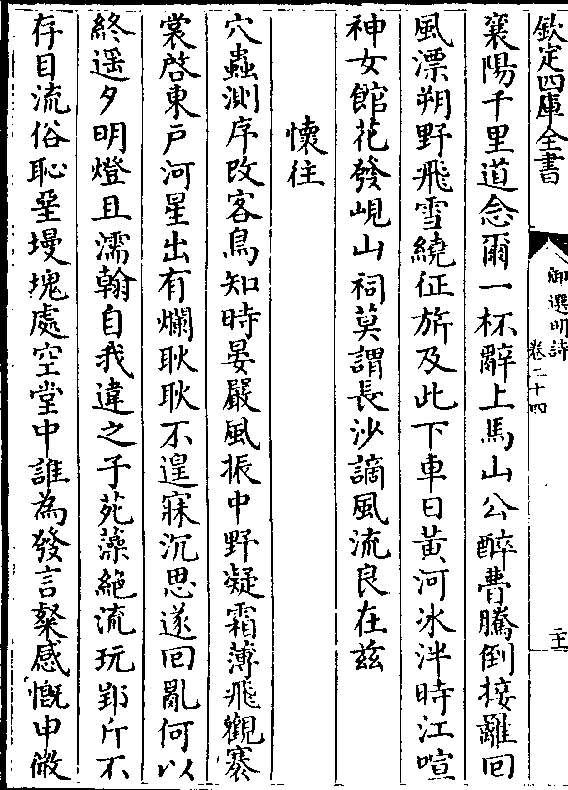 欽定四庫全書
御選明詩
卷二十四
二十一
襄陽千里道念爾一杯辭上馬山公醉曹騰倒接離回
風漂朔野飛雪繞征旂及此下車日黃河冰泮時江喧
神女館花發峴山祠莫謂長沙謫風流良在兹
懷往
穴蟲測序改客鳥知時晏嚴風振中野凝霜薄飛觀褰
裳啓東戸河星出有爛耿耿不遑寐沉思遂回亂何以
終遥夕明燈且濡翰自我違之子苑藻絶流玩郢斤不
存目流俗恥堊墁塊處空堂中誰為發言粲感慨申微